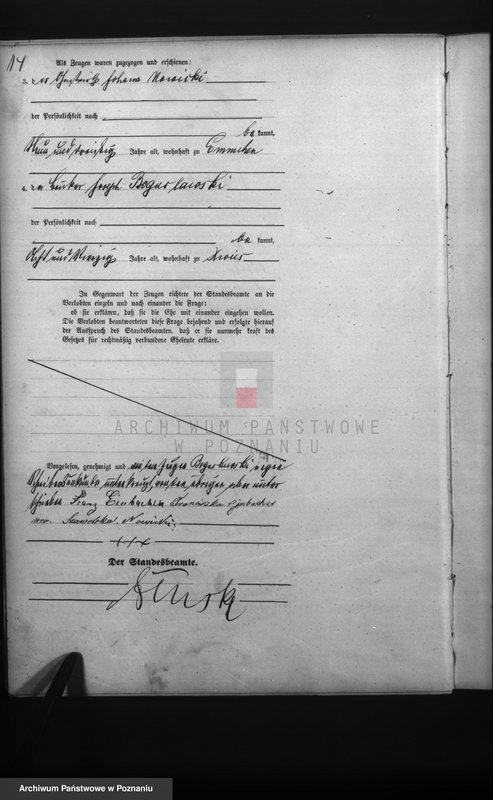 14
Als Zeugen waren zugezogen und erschienen:
3. der Johann Nowicki
der Persönlichkeit nach
be kannt,
Neun und dreißig Jahre alt, wohnhaft zu
4. der Joseph Boguslawski
der Persönlichkeit nach
be kannt,
Acht und Vierzig Jahre alt, wohnhaft zu
In Gegenwart der Zeugen richtete der Standesbeamte an die
Verlobten einzeln und nach einander die Frage:
ob sie erklären, daß sie die Ehe mit einander eingehen wollen.
Die Verlobten beantworteten diese Frage bejahend und erfolgte hierauf
der Ausspruch des Standesbeamten, daß er sie nunmehr kraft des
Gesetzes für rechtmäßig verbundene Eheleute erkläre.
ARCHIWUM PAŃSTWOWE
W POZNANIU
Vorgelesen, genehmigt und Boguslawski, wegen
unterkreuzt, von den übrigen aber unter
schrieben Franz Franciszka
Nowicki.
+++
Der Standesbeamte.
Archiwum Państwowe w Poznaniu